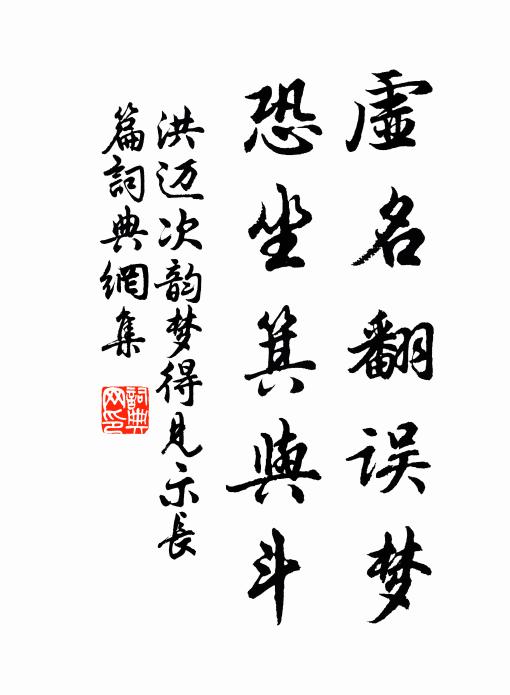 虛名翻误梦
恐坐箕與斗
洪迈次韵梦得见示長
篇詞典網集
詞典网印